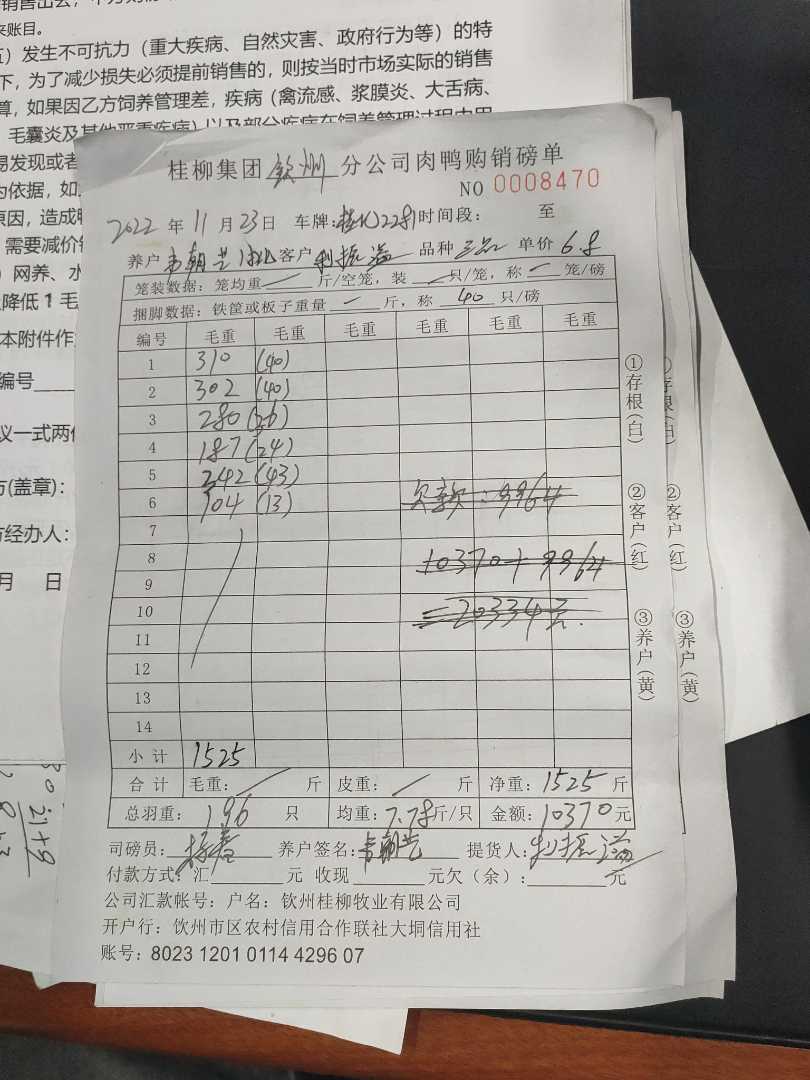 销售出去，
来账目。
五）发生不可抗力（重大疾病、自然灾害、政府行为等）的特
下，为了减少损失必须提前销售的，则按当时市场实际的销售
算，如果因乙方饲养管理差，疾病（禽流感、浆膜炎、大舌病、
毛囊炎及其他严重疾病）以及部分疾病在饲养管理过程中
易发现或者
为依据，如
原因，造成
需要减价销
）网养、水
降低1毛
本附件作
编号
议一式两份
方(盖章)：
方经办人：
月 日
桂柳集团 钦州 分公司肉鸭购销磅单
NO 0008470
2022 年 11 月 23 日 车牌: 时间段： 至
养户 韦朝艺 客户 利振溢 品种 单价 6.8
笼装数据：笼均重 — 斤/空笼，装 — 只/笼，称 — 笼/磅
捆脚数据：铁筐或板子重量 — 斤，称 40 只/磅
编号 毛重 毛重 毛重 毛重 毛重 毛重
1 310 (40)
2 302 (40)
3 280 (36)
4 187 (24)
5 342 (43)
6 104 (13) 欠款：9964
7
8 10370+9964
9
10 =20334元.
11
12
13
14
小 计 1525
合 计 毛重： 斤 皮重： 斤 净重：1525 斤
总羽重：196 只 均重：7.78斤/只 金额：10370元
司磅员： 养户签名：韦朝艺 提货人：利振溢
付款方式：汇 元 收现 元欠（余）： 元
公司汇款帐号：户名：钦州桂柳牧业有限公司
开户行：钦州市区农村信用合作联社大垌信用社
账号：8023 1201 0114 4296 07
①存根(白)
②客户(红)
③养户(黄)
②客户(红)
③养户(黄)